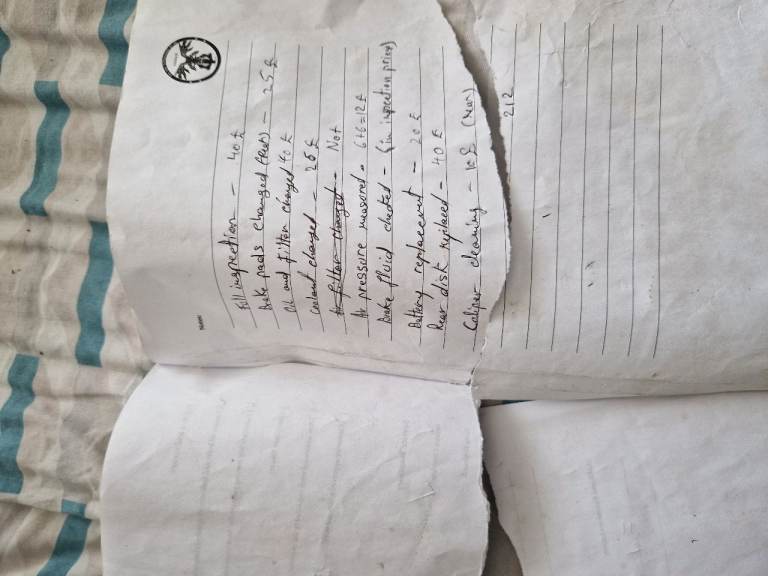 Note:
Full inspection - 40 £
Brake pads changed (Rear) - 25 £
Oil and filter changed 40 £
Coolant changed - 25 £
Air filter changed - Not
Air pressure measured - 6+6=12 £
Brake fluid checked - (in inspection price)
Battery replacement - 20 £
Rear disk replaced - 40 £
Caliper cleaning - 10 £ (Rear)
212